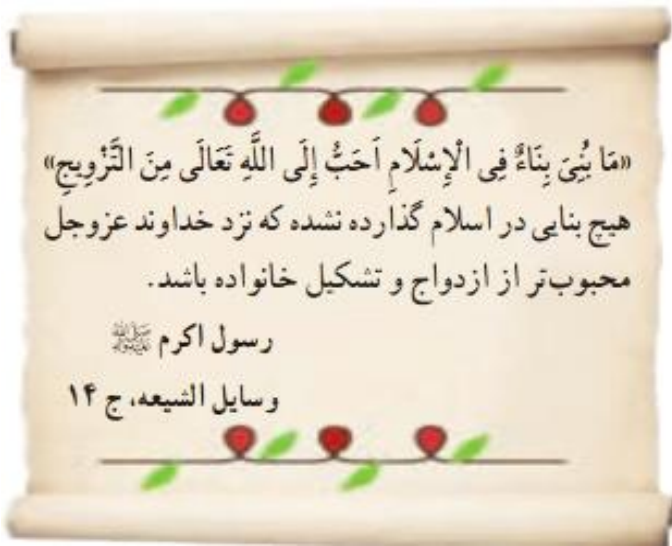 «مَا بُنِیَ بِنَاءٌ فِی الْإِسْلَامِ اَحَبُّ إِلَی اللَّهِ تَعَالَی مِنَ التَّزْوِیجِ»
هیچ بنایی در اسلام گذارده نشده که نزد خداوند عزوجل
محبوب‌تر از ازدواج و تشکیل خانواده باشد.
رسول اکرم ﷺ
وسایل الشیعه، ج ۱۴